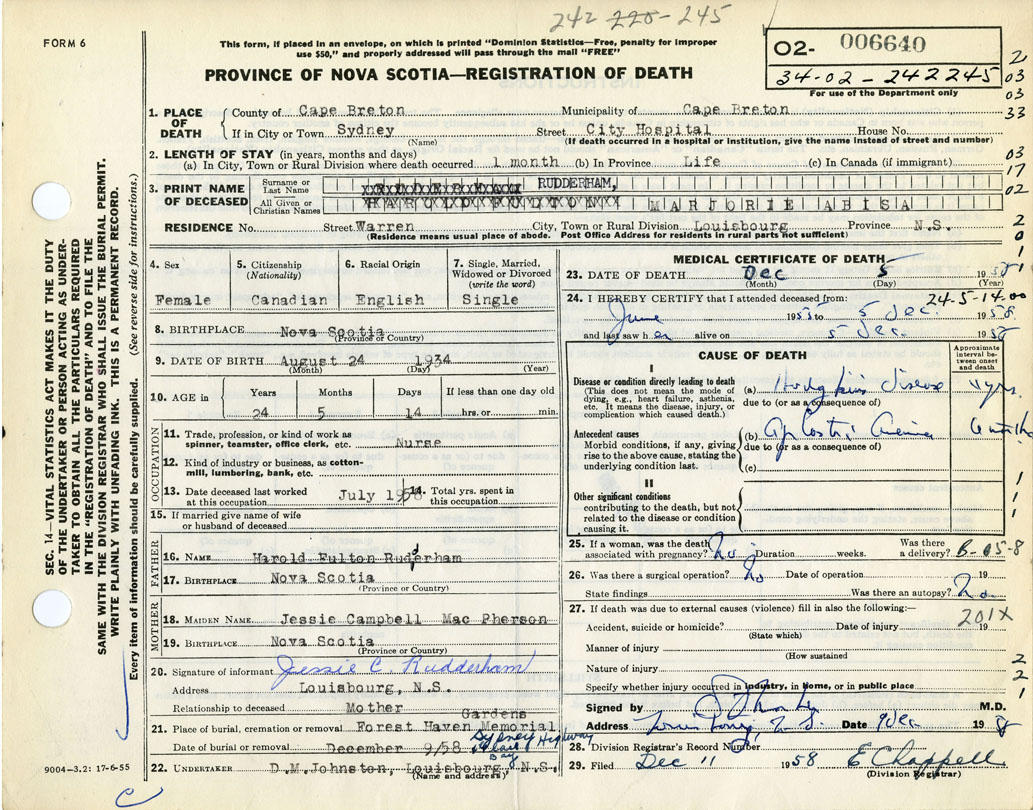 242 220 - 245
FORM 6
This form, if placed in an envelope, on which is printed "Dominion Statistics—Free, penalty for improper
use $50," and properly addressed will pass through the mail "FREE"
PROVINCE OF NOVA SCOTIA—REGISTRATION OF DEATH
02- 006640
34-02-242245
For use of the Department only
2
03
03
33
03
17
02
2
0
1
1. PLACE OF DEATH
County of Cape Breton Municipality of Cape Breton
If in City or Town Sydney Street City Hospital House No.
(Name) (If death occurred in a hospital or institution, give the name instead of street and number)
2. LENGTH OF STAY (in years, months and days)
(a) In City, Town or Rural Division where death occurred 1 month (b) In Province Life (c) In Canada (if immigrant)
3. PRINT NAME OF DECEASED
Surname or Last Name RUDDERHAM,
All Given or Christian Names MARJORIE ABISA
RESIDENCE No. Street Warren City, Town or Rural Division Louisbourg Province N.S.
(Residence means usual place of abode. Post Office Address for residents in rural parts not sufficient)
4. Sex
Female
5. Citizenship
(Nationality)
Canadian
6. Racial Origin
English
7. Single, Married,
Widowed or Divorced
(write the word)
Single
8. BIRTHPLACE Nova Scotia
(Province or Country)
9. DATE OF BIRTH August 24 1934
(Month) (Day) (Year)
10. AGE in
Years Months Days If less than one day old
24 5 14 hrs. or min.
OCCUPATION
11. Trade, profession, or kind of work as
spinner, teamster, office clerk, etc. Nurse
12. Kind of industry or business, as cotton-
mill, lumbering, bank, etc.
13. Date deceased last worked
at this occupation July 1958
14. Total yrs. spent in
this occupation
15. If married give name of wife
or husband of deceased
FATHER
16. NAME Harold Fulton Rudderham
17. BIRTHPLACE Nova Scotia
(Province or Country)
MOTHER
18. MAIDEN NAME Jessie Campbell Mac Pherson
19. BIRTHPLACE Nova Scotia
(Province or Country)
20. Signature of informant Jessie C. Rudderham
Address Louisbourg, N.S.
Relationship to deceased Mother
Gardens
21. Place of burial, cremation or removal Forest Haven Memorial
Sydney Highway
Glace
Bay
Date of burial or removal December 9/58
22. UNDERTAKER D.M.Johnston, Louisbourg, N.S.
(Name and address)
MEDICAL CERTIFICATE OF DEATH
23. DATE OF DEATH Dec 5 1958
(Month) (Day) (Year)
24. I HEREBY CERTIFY that I attended deceased from: 24-5-14-00
June 1955 to 5 Dec. 1958
and last saw her alive on 5 Dec. 1958
CAUSE OF DEATH
Approximate
interval be-
tween onset
and death
I
Disease or condition directly leading to death
(This does not mean the mode of
dying, e.g., heart failure, asthenia,
etc. It means the disease, injury, or
complication which caused death).
(a) Hodgkins disease yrs.
due to (or as a consequence of)
Antecedent causes
Morbid conditions, if any, giving
rise to the above cause, stating the
underlying condition last.
(b)
due to (or as a consequence of)
(c)
II
Other significant conditions
contributing to the death, but not
related to the disease or condition
causing it.
1
1
1
25. If a woman, was the death
associated with pregnancy? No Duration weeks. Was there
a delivery? B-05-8
26. Was there a surgical operation? No Date of operation 19
State findings Was there an autopsy? No
27. If death was due to external causes (violence) fill in also the following:— 201X
Accident, suicide or homicide? Date of injury 19
(State which)
Manner of injury
(How sustained
Nature of injury
Specify whether injury occurred in industry, in home, or in public place
2
2
1
Signed by M.D.
Address Louisbourg N.S. Date 9 Dec 1958
28. Division Registrar's Record Number
29. Filed Dec 11 1958 E Chappell
(Division Registrar)
SEC. 14—VITAL STATISTICS ACT MAKES IT THE DUTY
OF THE UNDERTAKER OR PERSON ACTING AS UNDER-
TAKER TO OBTAIN ALL THE PARTICULARS REQUIRED
IN THE "REGISTRATION OF DEATH" AND TO FILE THE
SAME WITH THE DIVISION REGISTRAR WHO SHALL ISSUE THE BURIAL PERMIT.
WRITE PLAINLY WITH UNFADING INK. THIS IS A PERMANENT RECORD.
Every item of information should be carefully supplied. (See reverse side for instructions.)
9004-3.2: 17-6-55